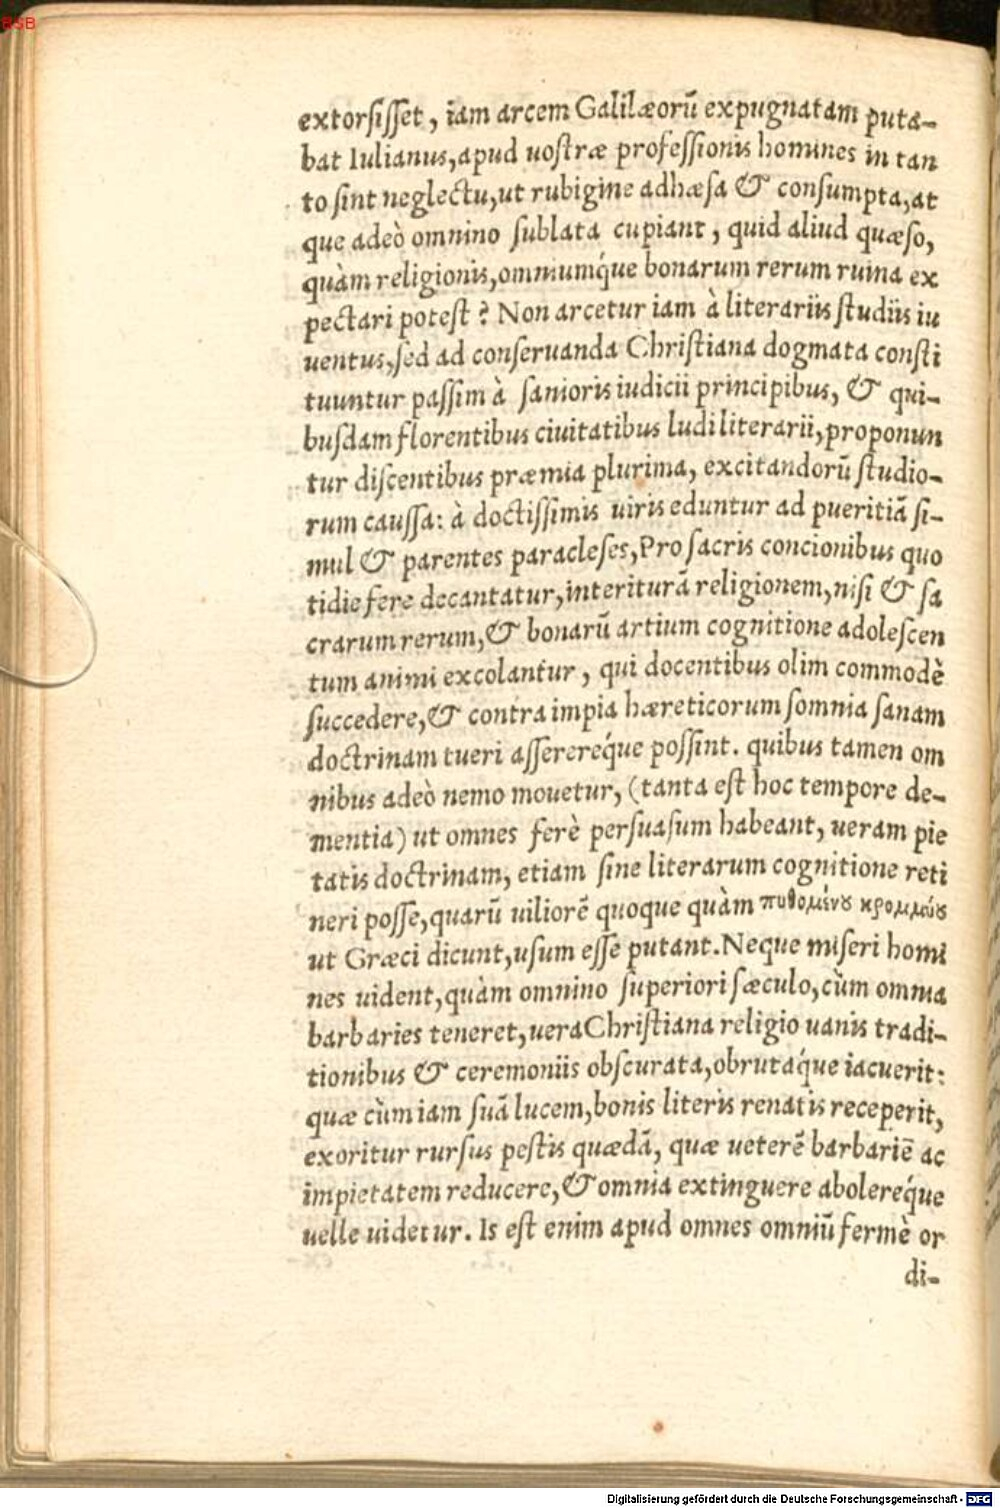 BSB
extorsisset, iam arcem Galilæorũ expugnatam puta-
bat Iulianus, apud uostræ professionis homines in tan
to sint neglectu, ut rubigine adhæsa & consumpta, at
que adeò omnino sublata cupiant, quid aliud quæso,
quàm religionis, omniumq́ue bonarum rerum ruina ex
pectari potest? Non arcetur iam à literariis studiis iu
uentus, sed ad conseruanda Christiana dogmata consti
tuuntur passim à sanioris iudicii principibus, & qui-
busdam florentibus ciuitatibus ludi literarii, proponun
tur discentibus præmia plurima, excitandorũ studio-
rum caussa: à doctissimis uiris eduntur ad pueritiã si-
mul & parentes paracleses, Pro sacris concionibus quo
tidie fere decantatur, interiturã religionem, nisi & sa
crarum rerum, & bonarũ artium cognitione adolescen
tum animi excolantur, qui docentibus olim commodè
succedere, & contra impia hæreticorum somnia sanam
doctrinam tueri assereréque possint. quibus tamen om
nibus adeò nemo mouetur, (tanta est hoc tempore de-
mentia) ut omnes ferè persuasum habeant, ueram pie
tatis doctrinam, etiam sine literarum cognitione reti
neri posse, quarũ uiliorẽ quoque quàm πυθομένου κρομμύου
ut Græci dicunt, usum esse putant. Neque miseri homi
nes uident, quàm omnino superiori sæculo, cùm omnia
barbaries teneret, uera Christiana religio uanis tradi-
tionibus & ceremoniis obscurata, obrutaq́ue iacuerit:
quæ cùm iam suã lucem, bonis literis renatis receperit,
exoritur rursus pestis quædã, quæ ueterẽ barbariẽ ac
impietatem reducere, & omnia extinguere abolereq́ue
uelle uidetur. Is est enim apud omnes omniũ fermè or
di-
Digitalisierung gefördert durch die Deutsche Forschungsgemeinschaft - DFG